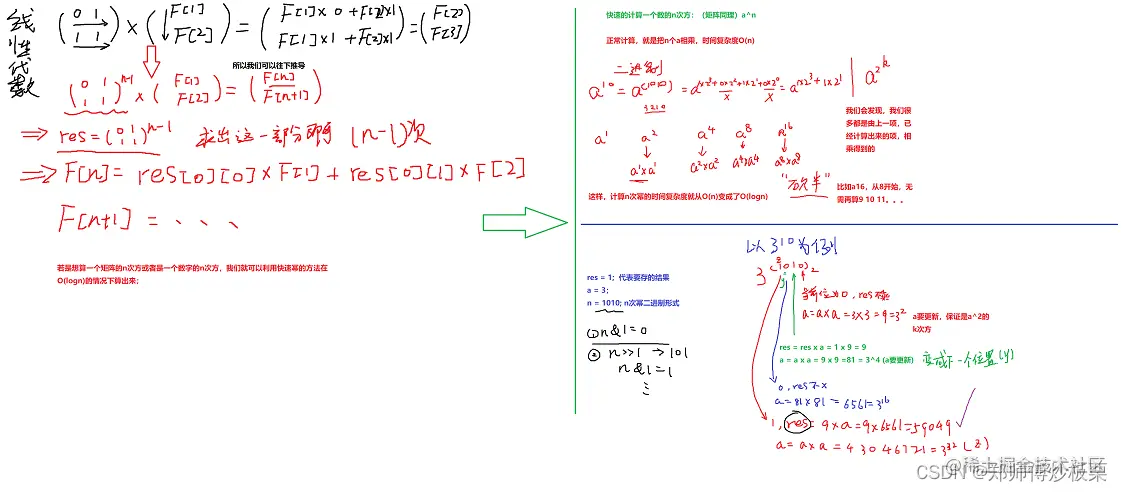 线性代数
(0 1
1 1) × (F[1]
F[2]) = (F[1]×0+F[2]×1
F[1]×1+F[2]×1) = (F[2]
F[3])
所以我们可以往下推导
(0 1
1 1)^n-1 × (F[1]
F[2]) = (F[n]
F[n+1])
⇒ res = (0 1
1 1)^n-1 求出这一部分即可 (n-1)次
⇒ F[n] = res[0][0]×F[1]+res[0][1]×F[2]
F[n+1] = 、、、
若是想算一个矩阵的n次方或者是一个数字的n次方,我们就可以利用快速幂的方法在
O(logn)的情况下算出来;
快速的计算一个数的n次方:(矩阵同理)a^n
正常计算,就是把n个a相乘,时间复杂度O(n)
二进制
a^10 = a^(1010) = a^1×2^3+0×2^2+1×2^1+0×2^0 = a^1×2^3+1×2^1 | a^2^k
3 2 1 0
a^1 a^2 a^4 a^8 a^16
a^1×a^1 a^2×a^2 a^4×a^4 a^8×a^8
我们会发现,我们很
多都是由上一项,已
经计算出来的项,相
乘得到的
"砍半"
比如a16,从8开始,无
需再算9 10 11。。。
这样,计算n次幂的时间复杂度就从O(n)变成了O(logn)
以3^10为例
3^(1010)2
res = 1;代表要存的结果
a = 3;
n = 1010; n次幂二进制形式
① n&1=0
② n>>1 → 101
n&1=1
当前位为0,res不乘
a=a×a=3×3=9=3^2
a要更新,保证是a^2的
k次方
res = res x a = 1 x 9 = 9
a = a x a = 9 x 9 =81 = 3^4 (a要更新)
变成下一个位置(y)
0,res不×
a=81×81=6561=3^16
1,res=9×a=9×6561=59049
a=a×a=43046721=3^32(z)
@稀土掘金技术社区
CSDN @郑师傅炒板栗